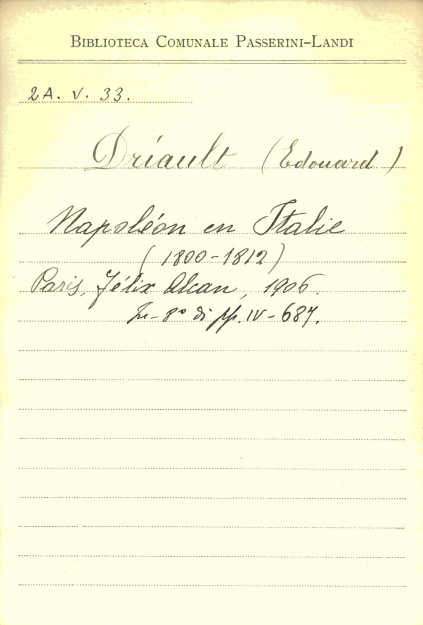 BIBLIOTECA COMUNALE PASSERINI-LANDI
2A. V. 33.
Driault (Edouard)
Napoléon en Italie
(1800-1812)
Paris, Félix Alcan, 1906.
In-8° di pp. IV-687.